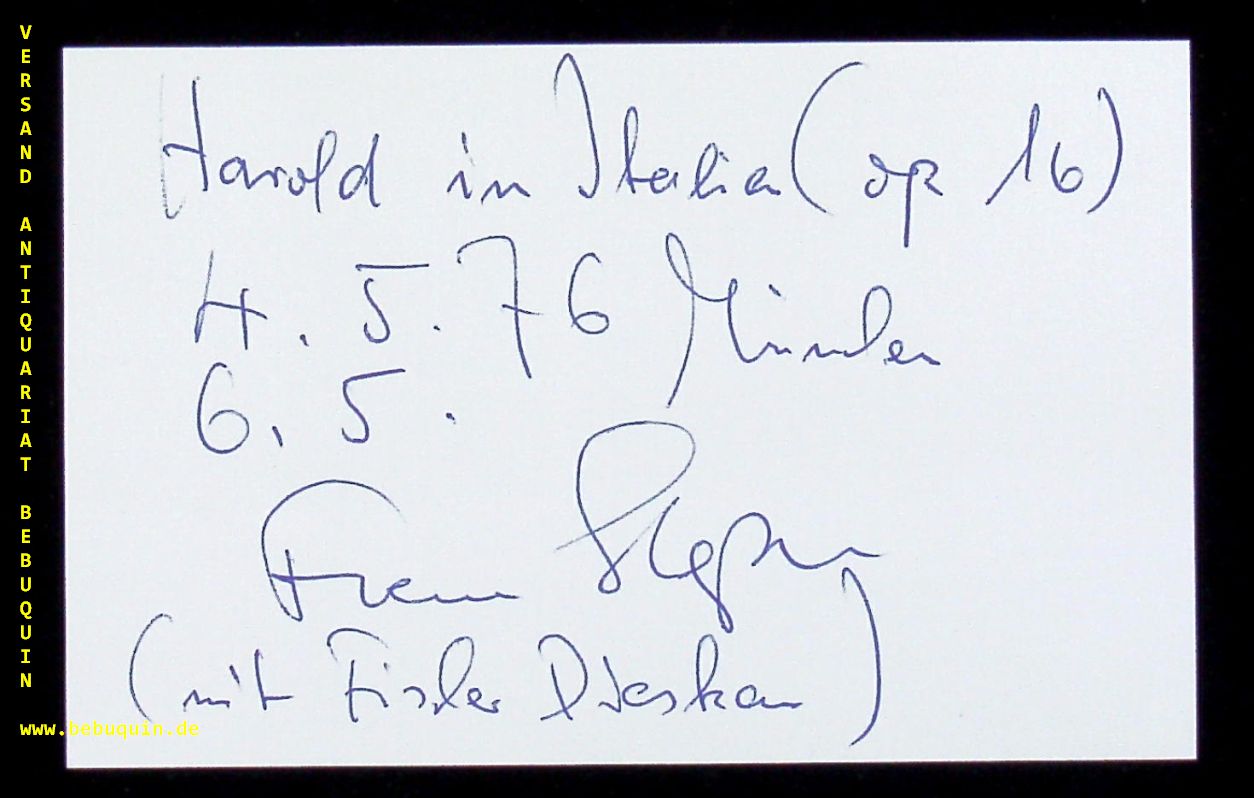 VERSAND ANTIQUARIAT BEBUQUIN
Harold in Italia (op 16)
4. 5. 76 München
6. 5.
(mit Fischer Dieskau)
www.bebuquin.de